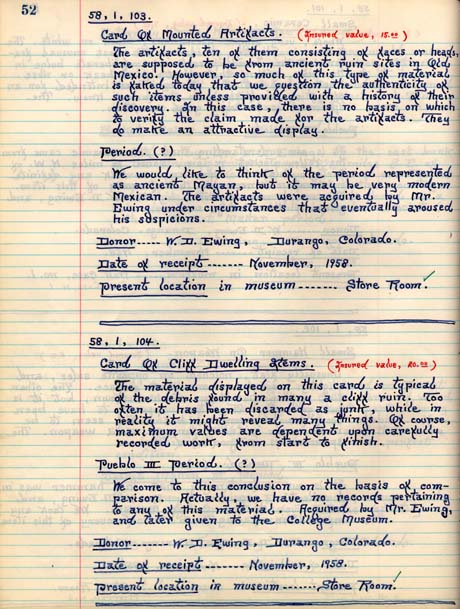 52
58, 1, 103.
Card Of Mounted Artifacts. (Insured value, 15.00)
The artifacts, ten of them consisting of faces or heads,
are supposed to be from ancient ruin sites in Old
Mexico. However, so much of this type of material
is faked today that we question the authenticity of
such items unless provided with a history of their
discovery. In this case, there is no basis on which
to verify the claim made for the artifacts. They
do make an attractive display.
Period. (?)
We would like to think of the period represented
as ancient Mayan, but it may be very modern
Mexican. The artifacts were acquired by Mr.
Ewing under circumstances that eventually aroused
his suspicions.
Donor----- W. D. Ewing, Durango, Colorado.
Date of receipt------- November, 1958.
Present location in museum ------- Store Room.
58, 1, 104.
Card Of Cliff Dwelling Items. (Insured value, 20.00)
The material displayed on this card is typical
of the debris found in many a cliff ruin. Too
often it has been discarded as junk, while in
reality it might reveal many things. Of course,
maximum values are dependent upon carefully
recorded work, from start to finish.
Pueblo III Period. (?)
We come to this conclusion on the basis of com-
parison. Actually, we have no records pertaining
to any of this material. Acquired by Mr. Ewing,
and later given to the College Museum.
Donor------- W. D. Ewing, Durango, Colorado.
Date of receipt ------- November, 1958.
Present location in museum ------- Store Room.